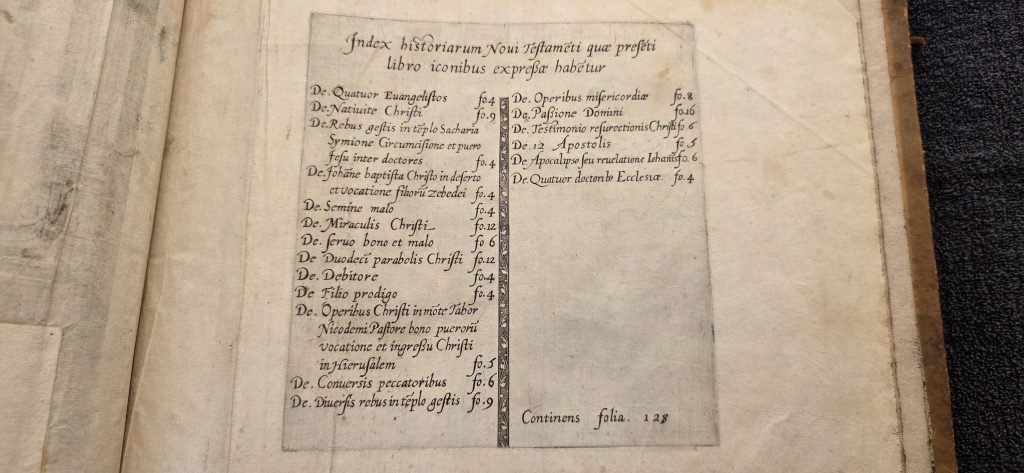 Index historiarum Noui Testamēti quæ presēti
libro iconibus expreßæ habētur
De. Quatuor Euangelistos fo.4
De. Natiuite Christi fo.9
De. Rebus gestis in tēplo Sacharia
Symione Circumcisione et puero
Jesu inter doctores fo.4
De. Johāne baptista Christo in deserto
et vocatione filiorū Zebedei fo.4
De. Semine malo fo.4
De. Miraculis Christi fo.12
De. seruo bono et malo fo 6
De Duodecī parabolis Christi fo.12
De. Debitore fo.4
De Filio prodigo fo.4
De. Operibus Christi in mōte Tabor
Nicodemi Pastore bono puerorū
vocatione et ingreßu Christi
in Hierusalem fo.5
De. Conuersis peccatoribus fo.6
De. Diuersis rebus in tēplo gestis fo.9
De. Operibus misericordiæ fo.8
De. Paßione Domini fo.16
De. Testimonio resurectionis Christi fo 6
De. 12 Apostolis fo.5
De Apocalypso seu reuelatione Iohanis fo.6
De. Quatuor doctorib⁹ Ecclesiæ. fo.4
Continens folia. 128